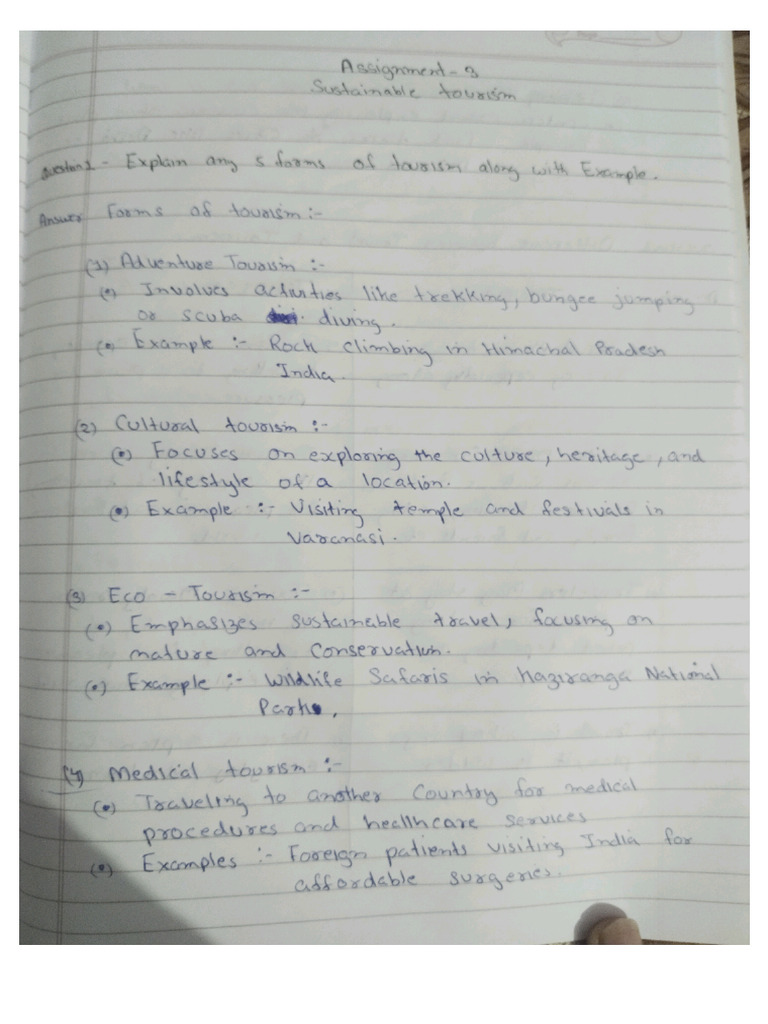 Assignment - 3
Sustainable tourism
Question 1 - Explain any 5 forms of tourism along with Example.
Answer Forms of tourism :-
(1) Adventure Tourism :-
(•) Involves activities like trekking, bungee jumping
or scuba diving.
(•) Example :- Rock climbing in Himachal Pradesh
India.
(2) Cultural tourism :-
(•) Focuses on exploring the culture, heritage, and
lifestyle of a location.
(•) Example :- Visiting temple and festivals in
Varanasi.
(3) Eco - Tourism :-
(•) Emphasizes sustainable travel, focusing on
nature and conservation.
(•) Example :- Wildlife Safaris in Kaziranga National
Park.
(4) Medical tourism :-
(•) Traveling to another country for medical
procedures and healthcare services
(•) Examples :- Foreign patients visiting India for
affordable surgeries.